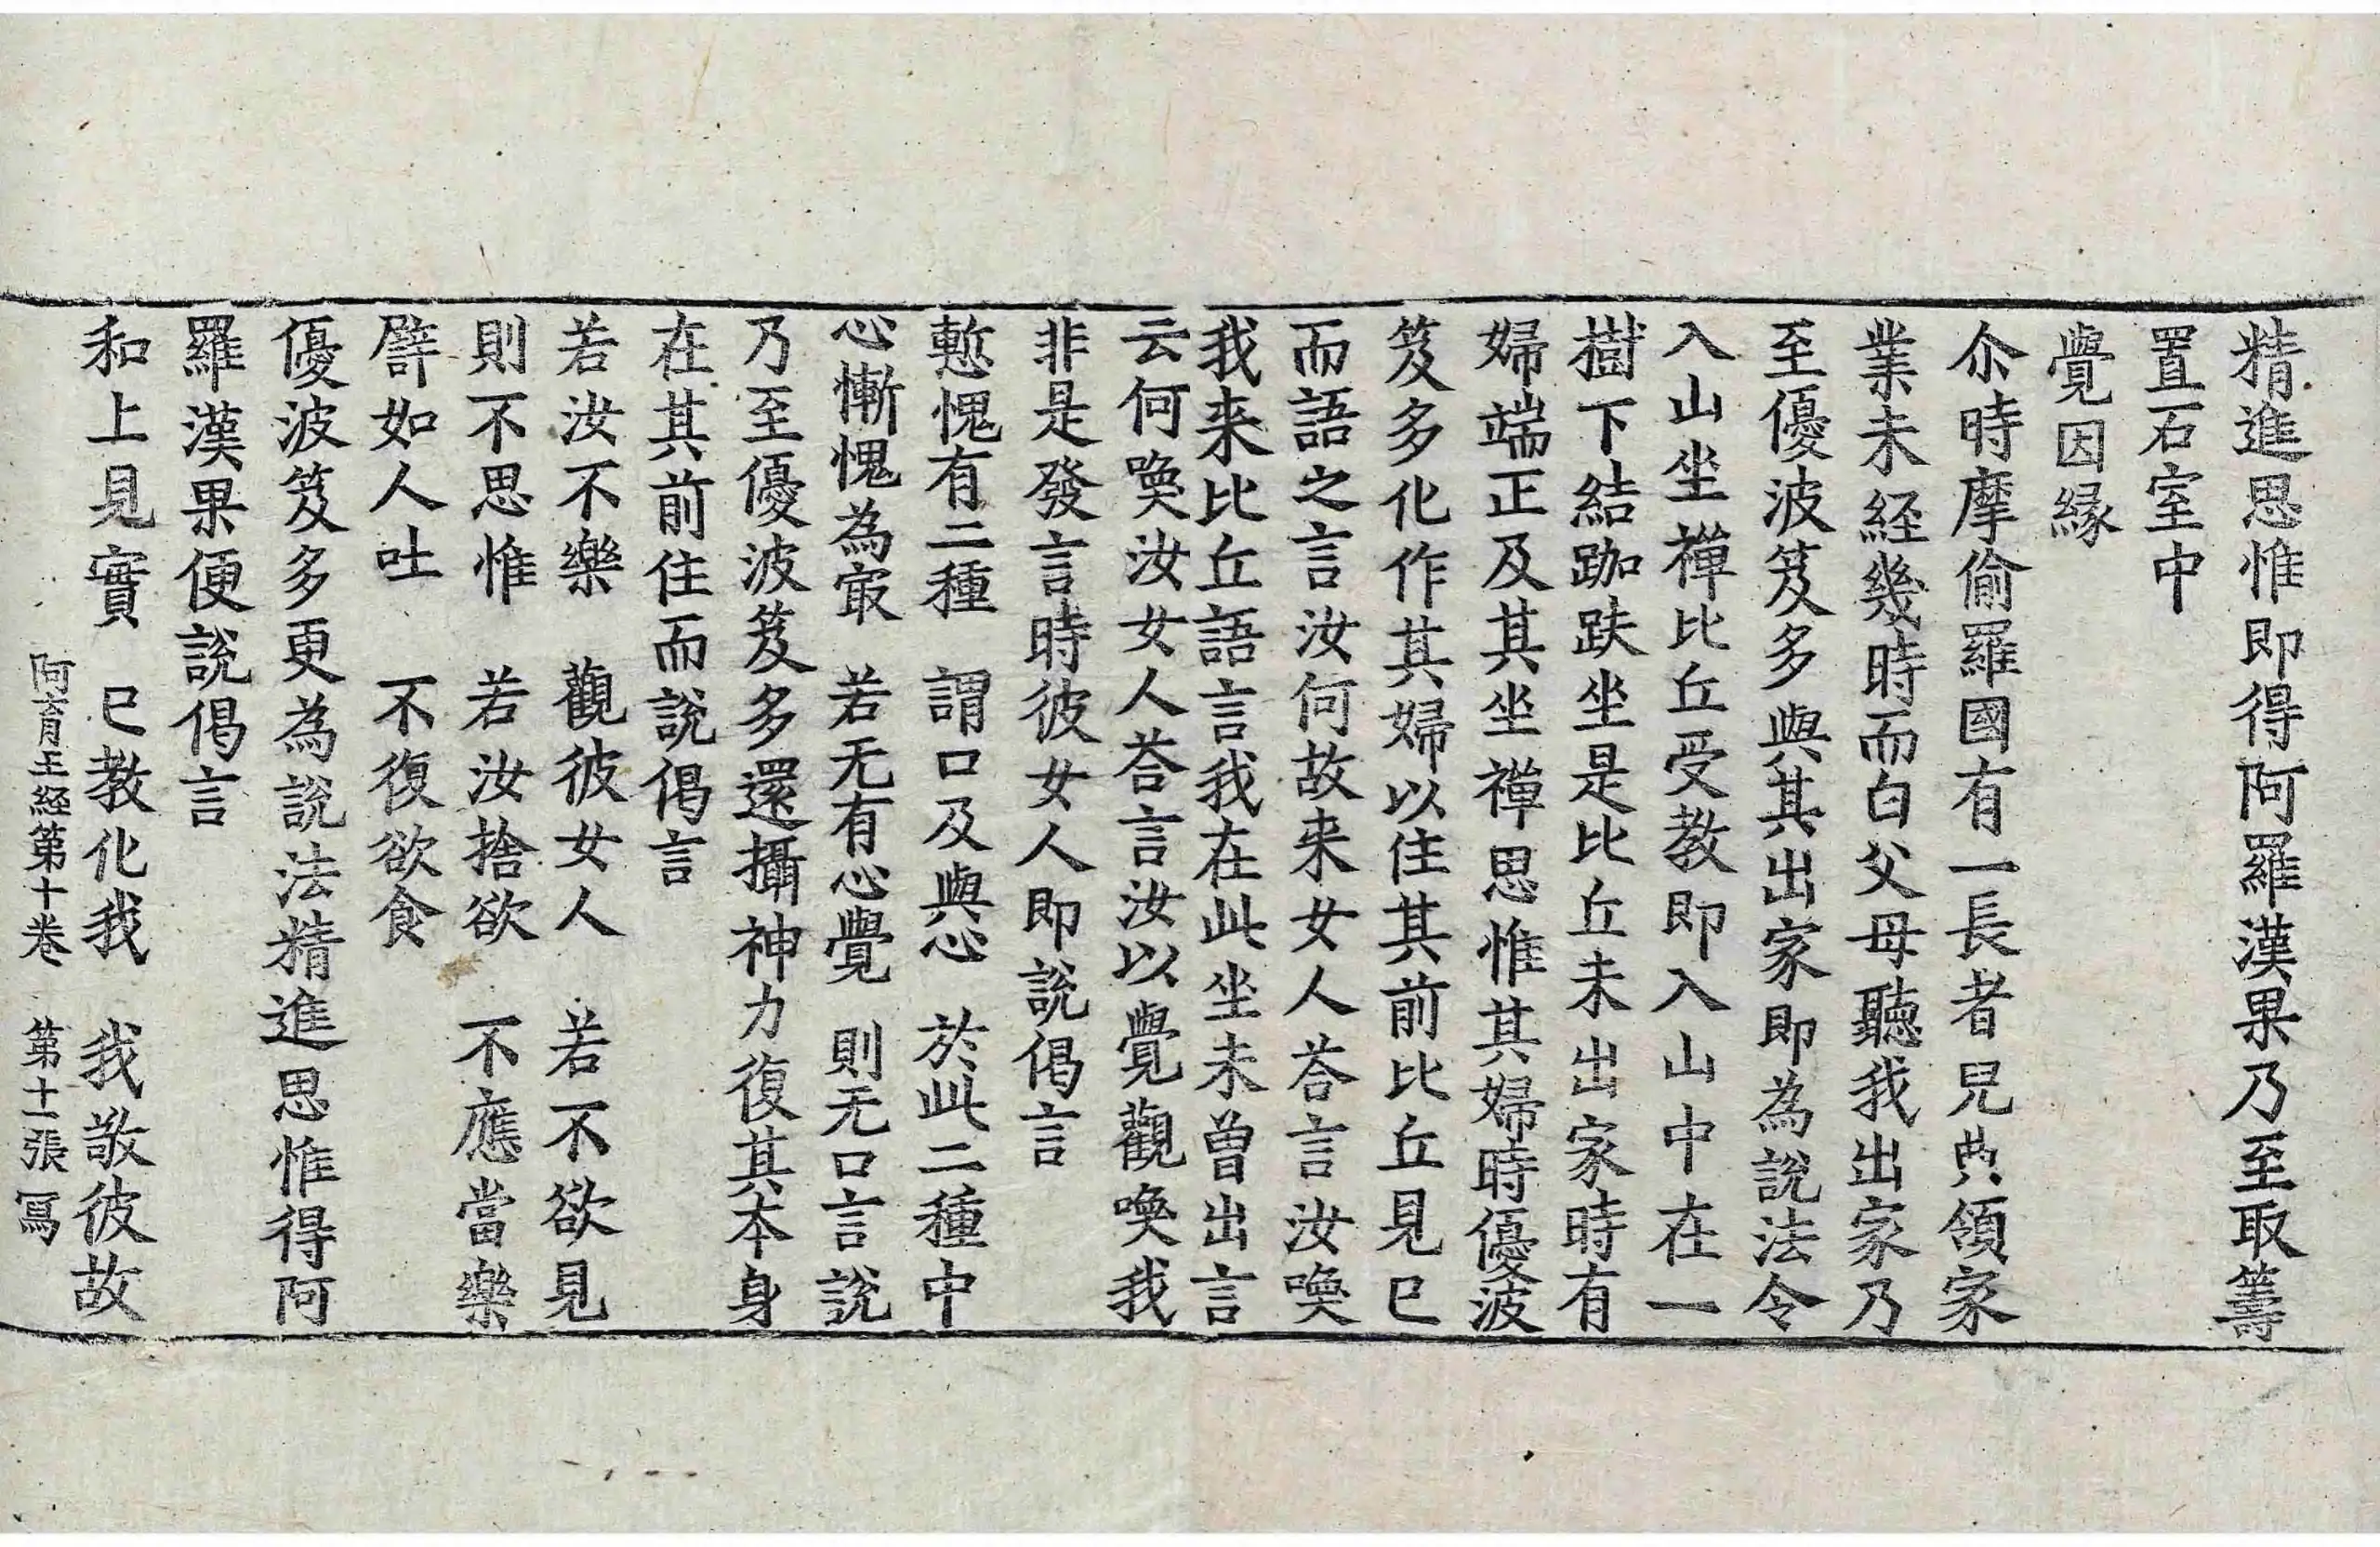 精進思惟即得阿羅漢果乃至取籌
置石室中
覺因縁
尒時摩偷羅國有一長者兒典領家
業未経幾時而白父母聽我出家乃
至優波笈多與其出家即為說法令
入山坐禪比丘受教即入山中在一
樹下結跏趺坐是比丘未出家時有
婦端正及其坐禪思惟其婦時優波
笈多化作其婦以住其前比丘見已
而語之言汝何故来女人荅言汝喚
我来比丘語言我在此坐未曾出言
云何喚汝女人荅言汝以覺觀喚我
非是發言時彼女人即說偈言
慙愧有二種　謂口及與心　於此二種中
心慚愧為㝡　若无有心覺　則无口言說
乃至優波笈多還攝神力復其本身
在其前住而說偈言
若汝不樂　觀彼女人　若不欲見
則不思惟　若汝捨欲　不應當樂
譬如人吐　不復欲食
優波笈多更為說法精進思惟得阿
羅漢果便說偈言
和上見實　已教化我　我敬彼故
阿育王経第十卷　第十一張　寫